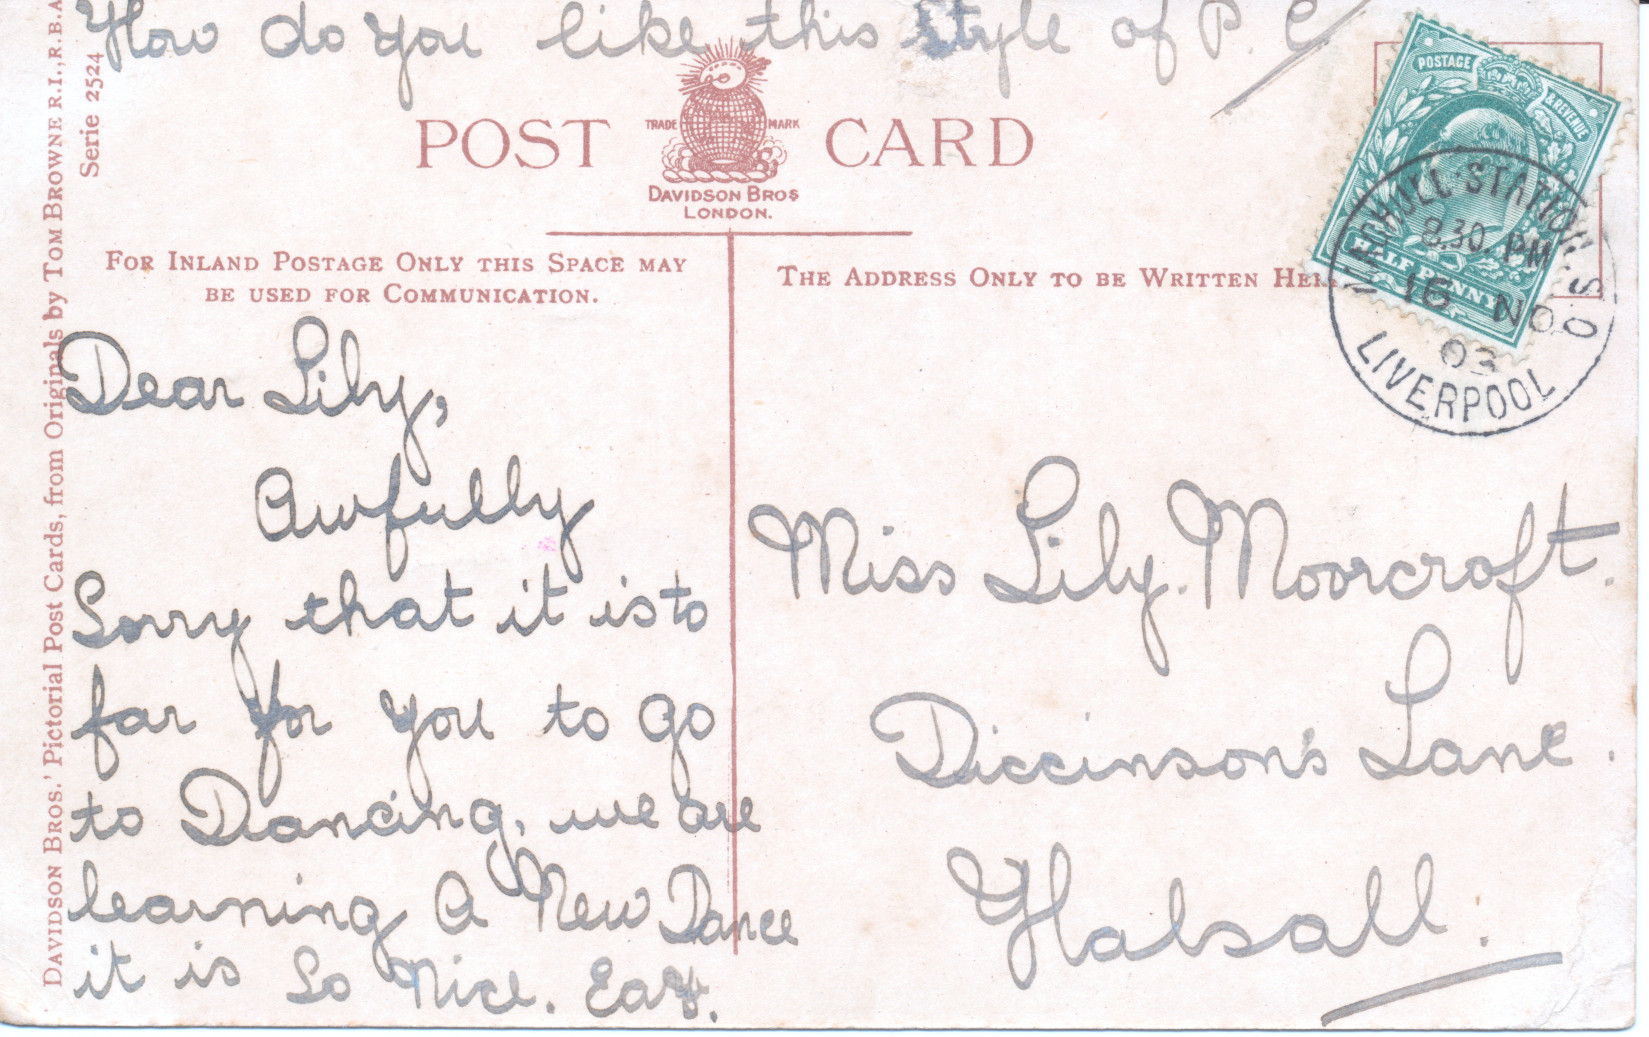 How do you like this Style of P. C
POST CARD
TRADE MARK
DAVIDSON BROS
LONDON.
FOR INLAND POSTAGE ONLY THIS SPACE MAY
BE USED FOR COMMUNICATION.
Dear Lily,
Awfully
Sorry that it is to
far for you to go
to Dancing, we are
learning A New Dance
it is So Nice. Easy.
THE ADDRESS ONLY TO BE WRITTEN HERE
Miss Lily. Moorcroft.
Diccinson's Lane.
Halsall.
POSTAGE & REVENUE
HALF PENNY
MAGHULL STATION S.O
8.30 PM
16 NO
03
LIVERPOOL
DAVIDSON BROS.' Pictorial Post Cards, from Originals by TOM BROWNE R.I., R.B.A
Serie 2524